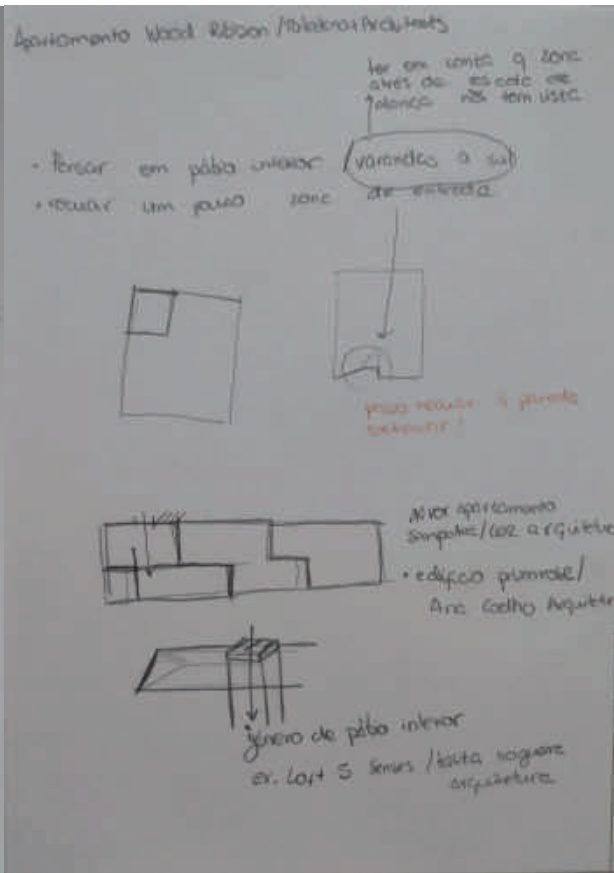 Apartamento Wood Ribbon / Toledano + Architects
ter em conta q zona
atrés da escada de
não tem vista
• Pensar em pátio interior / varandas a sul
• recuar um pouco zona de entrada
posso recuar a parede
exterior!
apartamento
arquitetura
• edifício primrose /
Ana Coelho Arquitetura
género de pátio interior
ex. Loft 5 Senses / taita noguera
arquitetura